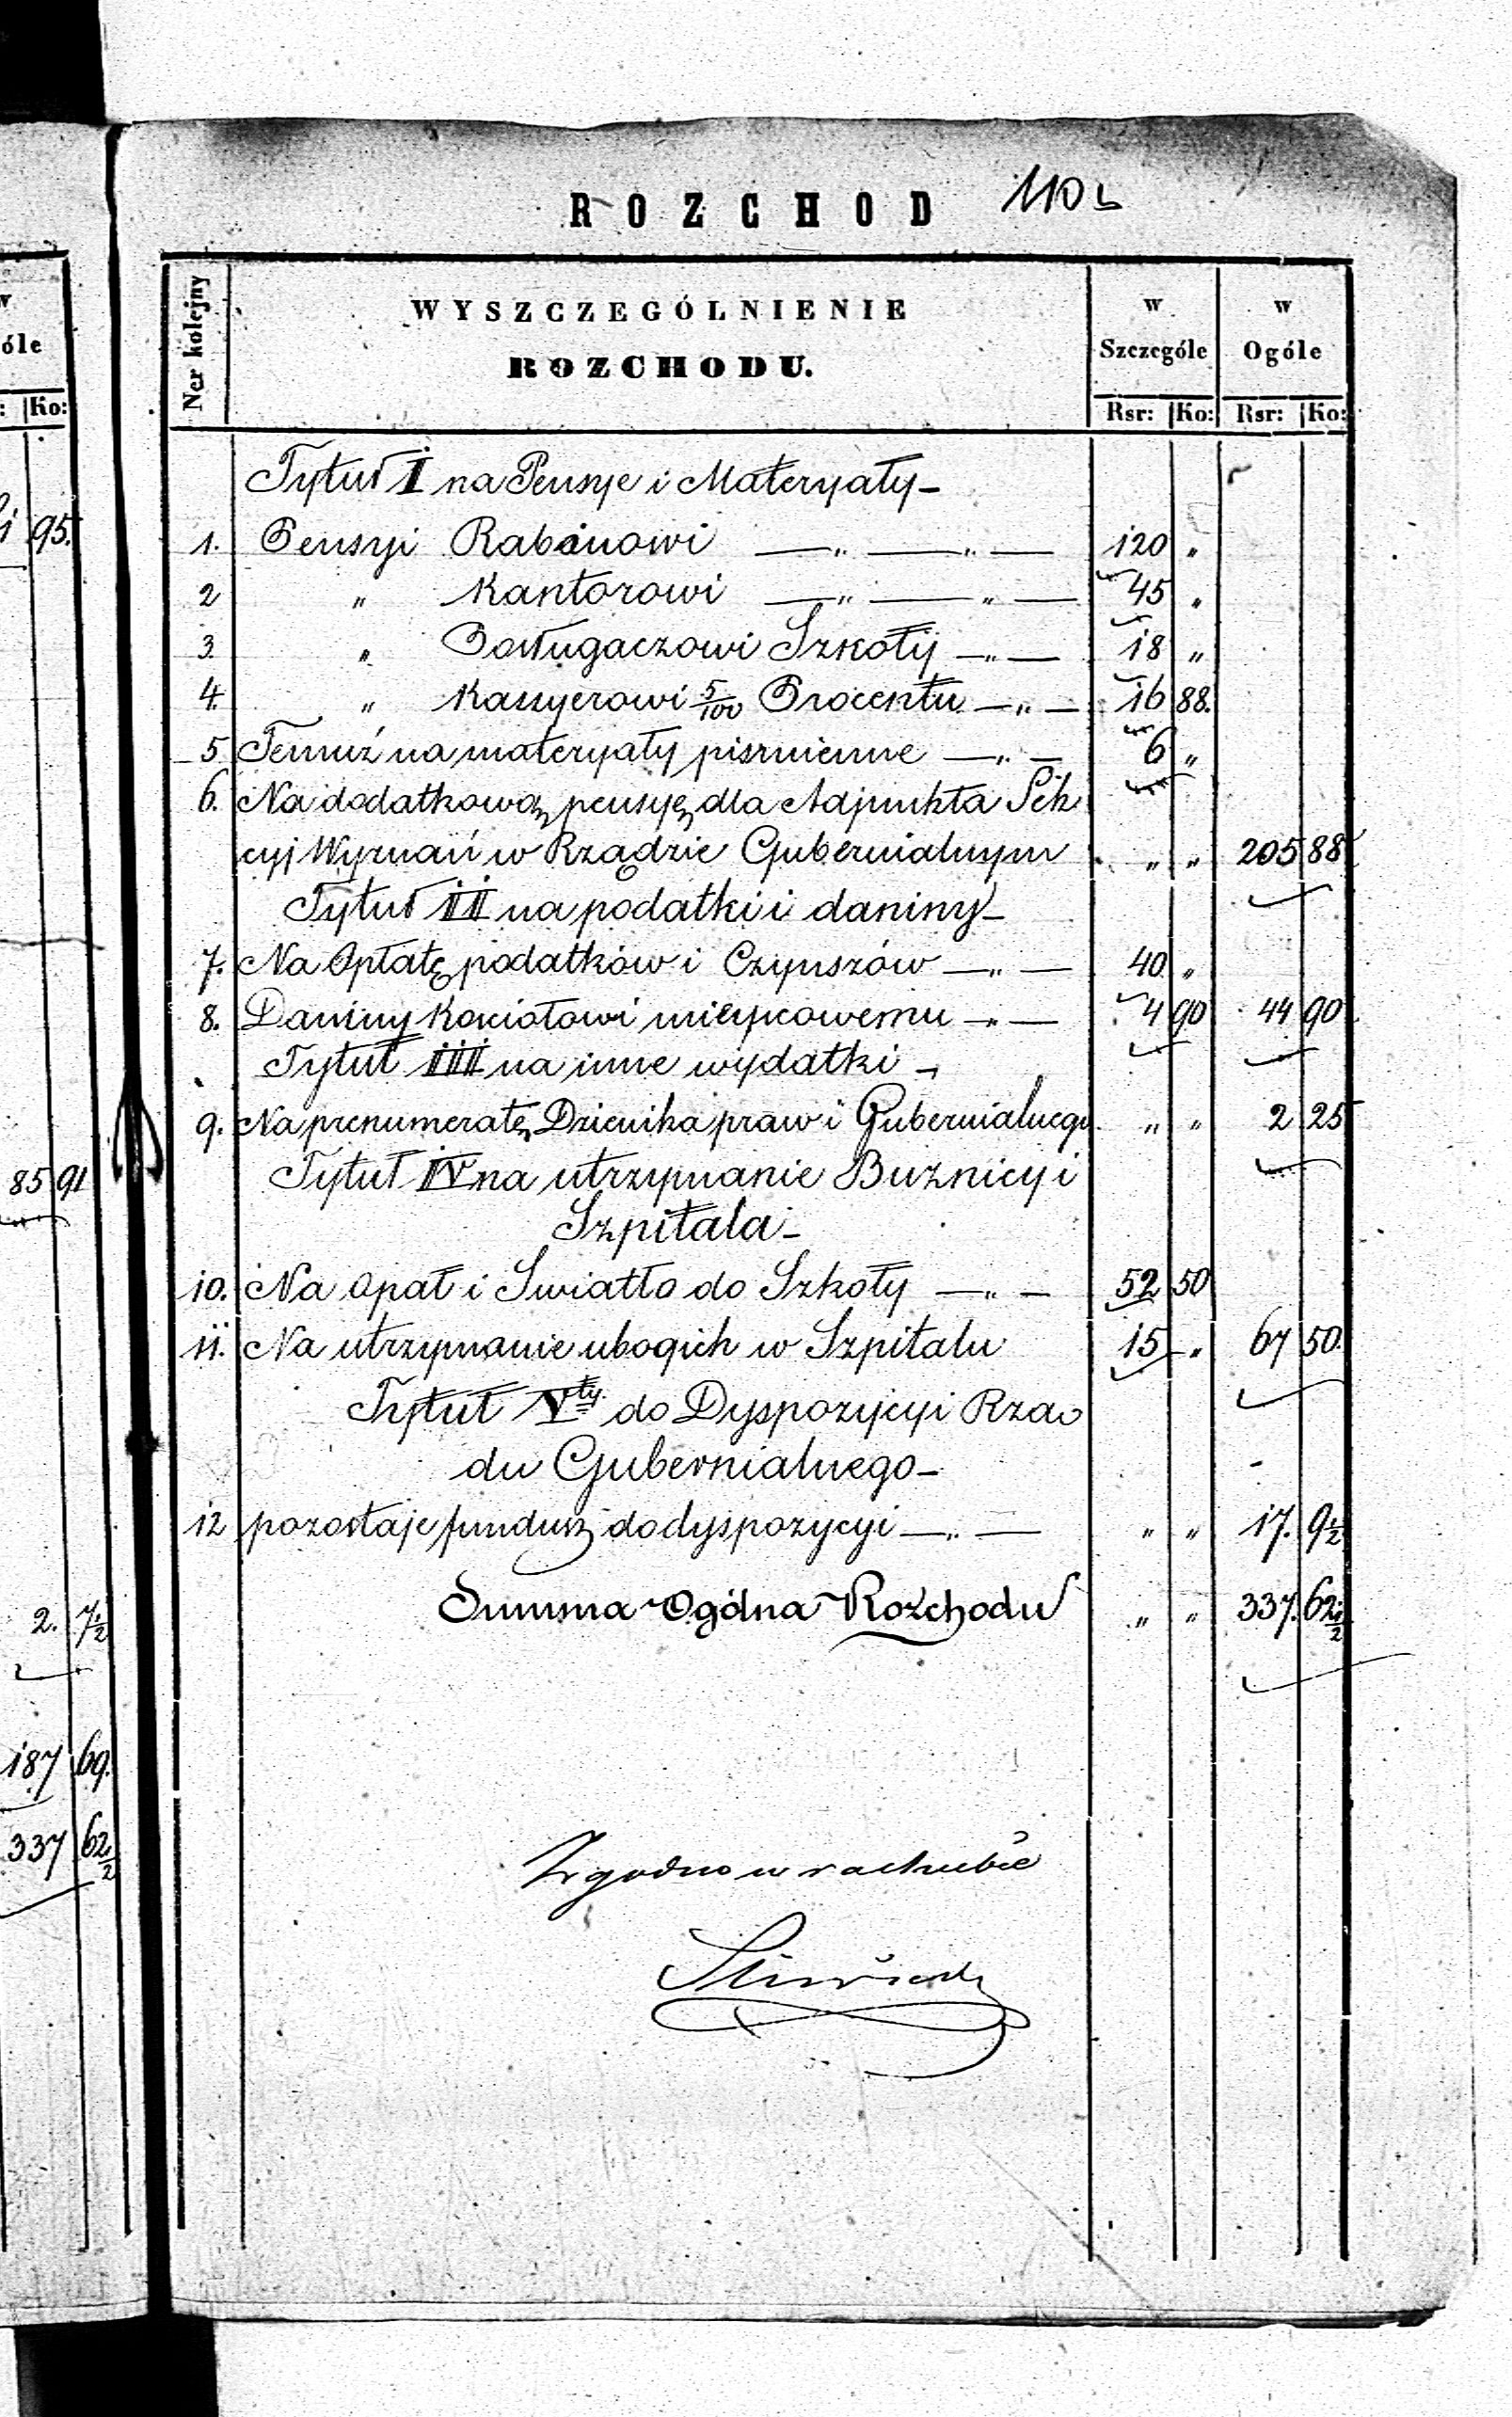 ROZCHOD 110
w
óle
: Ko:
95.
85 91
2. 7½
187 69.
337 62½
Ner kolejny
WYSZCZEGÓLNIENIE
ROZCHODU.
w Szczególe
w Ogóle
Rsr: Ko: Rsr: Ko:
Tytuł I na Pensye i Materyały —
1. Pensyi Rabinowi — „ — „ — 120 „
2 „ Kantorowi — „ — „ — 45 „
3. „ Posługaczowi Szkoły — „ — 18 „
4. „ Kassyerowi 5/100 Procentu — „ — 16 88.
5 Temuż na materyały piśmienne — „ — 6 „
6. Na dodatkową pensyę dla Adjunkta Sek
cyi Wyznań w Rządzie Gubernialnym „ „ 205 88
Tytuł II na podatki i daniny —
7. Na Opłatę podatków i Czynszów — „ — 40. „
8. Daniny Kościołowi mieyscowemu — „ — 4 90 44 90
Tytuł III na inne wydatki —
9. Na prenumeratę Dzienika praw i Gubernialnego „ „ 2 25
Tytuł IV na utrzymanie Bużnicy i
Szpitala —
10. Na Opał i Swiatło do Szkoły — „ — 52 50
11. Na utrzymanie ubogich w Szpitalu 15 „ 67 50.
Tytuł Vty do Dyspozycyi Rzą
du Gubernialnego —
12 pozostaje fundusz do dyspozycyi — „ — „ „ 17. 9½
Summa Ogólna Rozchodu „ „ 337. 62½
Zgodno w rachubie